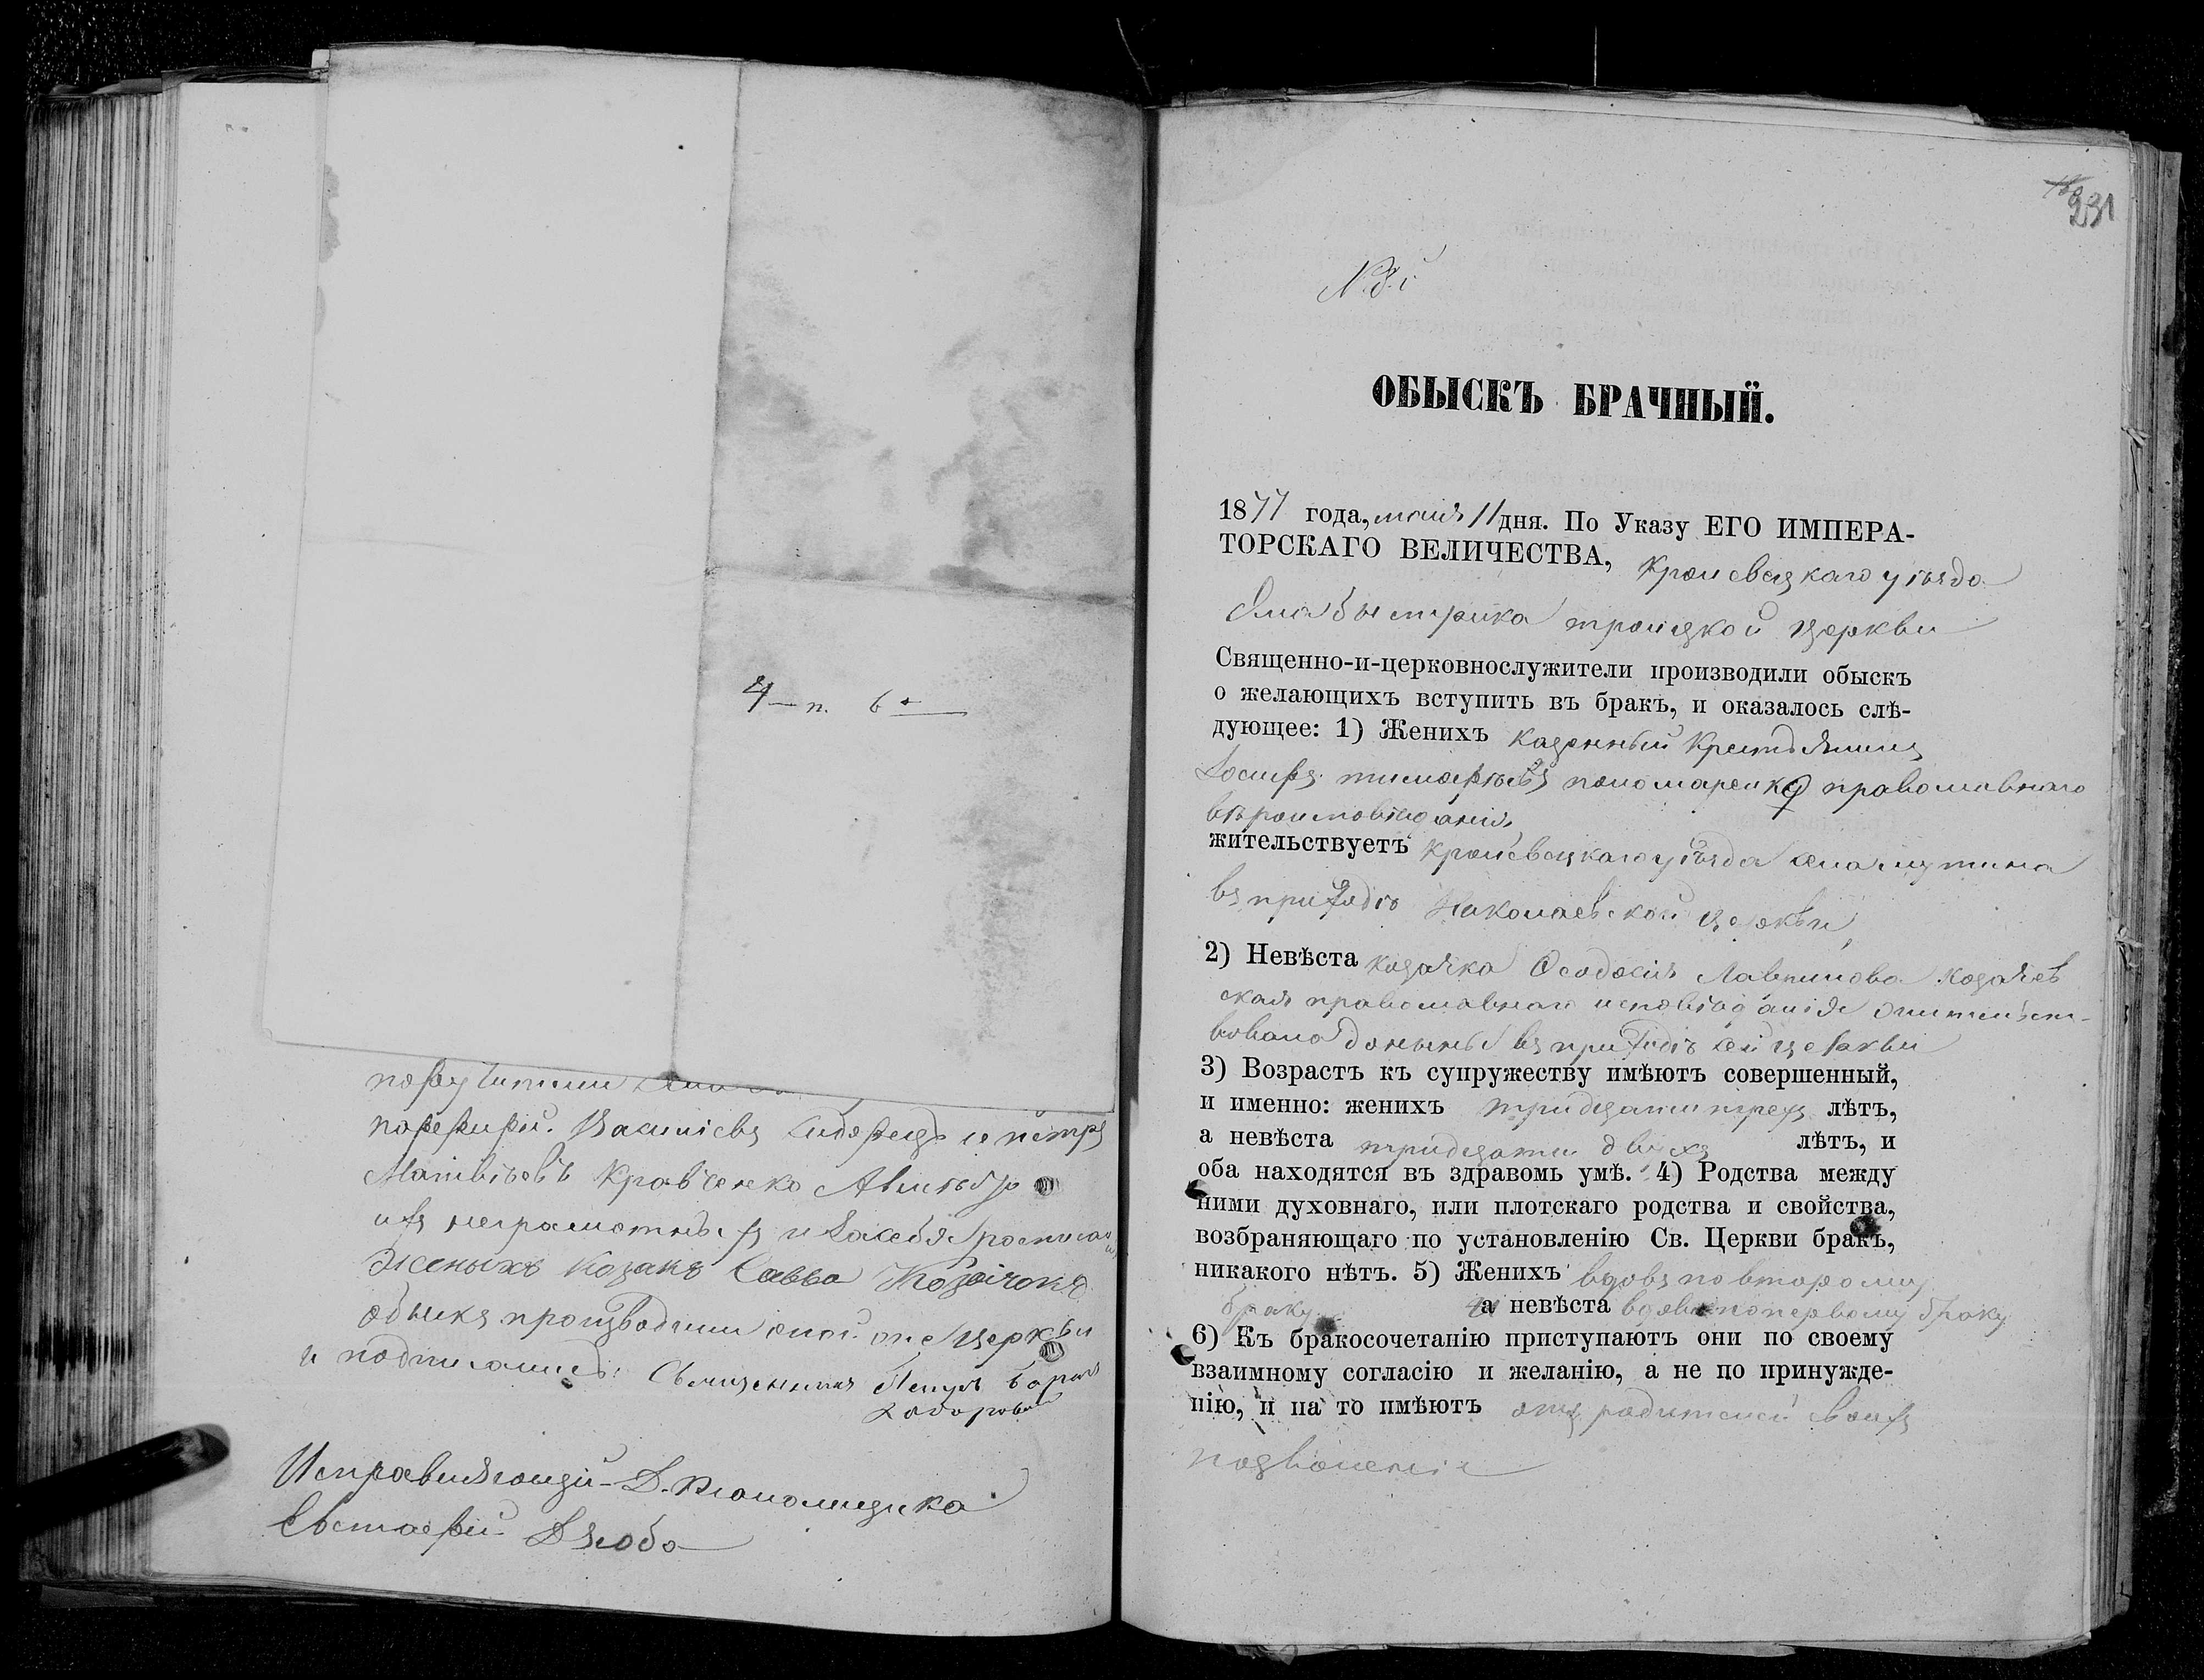 4 — п. 6
поручители
порфирий. Василіевъ Сидорецъ и петръ
Матвѣевъ Кравченко А вмѣсто
ихъ неграмотныхъ и засебя росписался
Женихъ Козакъ Савва Козачокъ
обыскъ производили оной же церкви
и подписались: Священникъ
Исправляющій Д. Пономщика
Евстафій Дзюба
231
N 8й
ОБЫСКЪ БРАЧНЫЙ.
1877 года, маія 11 дня. По Указу ЕГО ИМПЕРА-
ТОРСКАГО ВЕЛИЧЕСТВА, Кролевецкаго уѣзда
Села быстрика троицкой церкви
Священно-и-церковнослужители производили обыскъ
о желающихъ вступить въ бракъ, и оказалось слѣ-
дующее: 1) Женихъ казенный Крестьянинъ
Іосифъ тимофѣевъ пономаренко православнаго
вѣроисповѣданія,
жительствуетъ кролевецкаго уѣзда села мутина
въ приходѣ Николаевской церкви,
2) Невѣста козачка Ѳеодосія Лавринова козачев
ская православнаго исповѣданія жительст-
вовала донынѣ въ приходѣ сей церкви
3) Возрастъ къ супружеству имѣютъ совершенный,
и именно: женихъ тридцати трехъ лѣтъ,
а невѣста тридцати двухъ лѣтъ, и
оба находятся въ здравомъ умѣ. 4) Родства между
ними духовнаго, или плотскаго родства и свойства,
возбраняющаго по установленію Св. Церкви бракъ,
никакого нѣтъ. 5) Женихъ вдовъ по второму
браку а невѣста вдова по первому браку
6) Къ бракосочетанію приступаютъ они по своему
взаимному согласію и желанію, а не по принужде-
нію, и на то имѣютъ отъ родителей своихъ
позволеніе